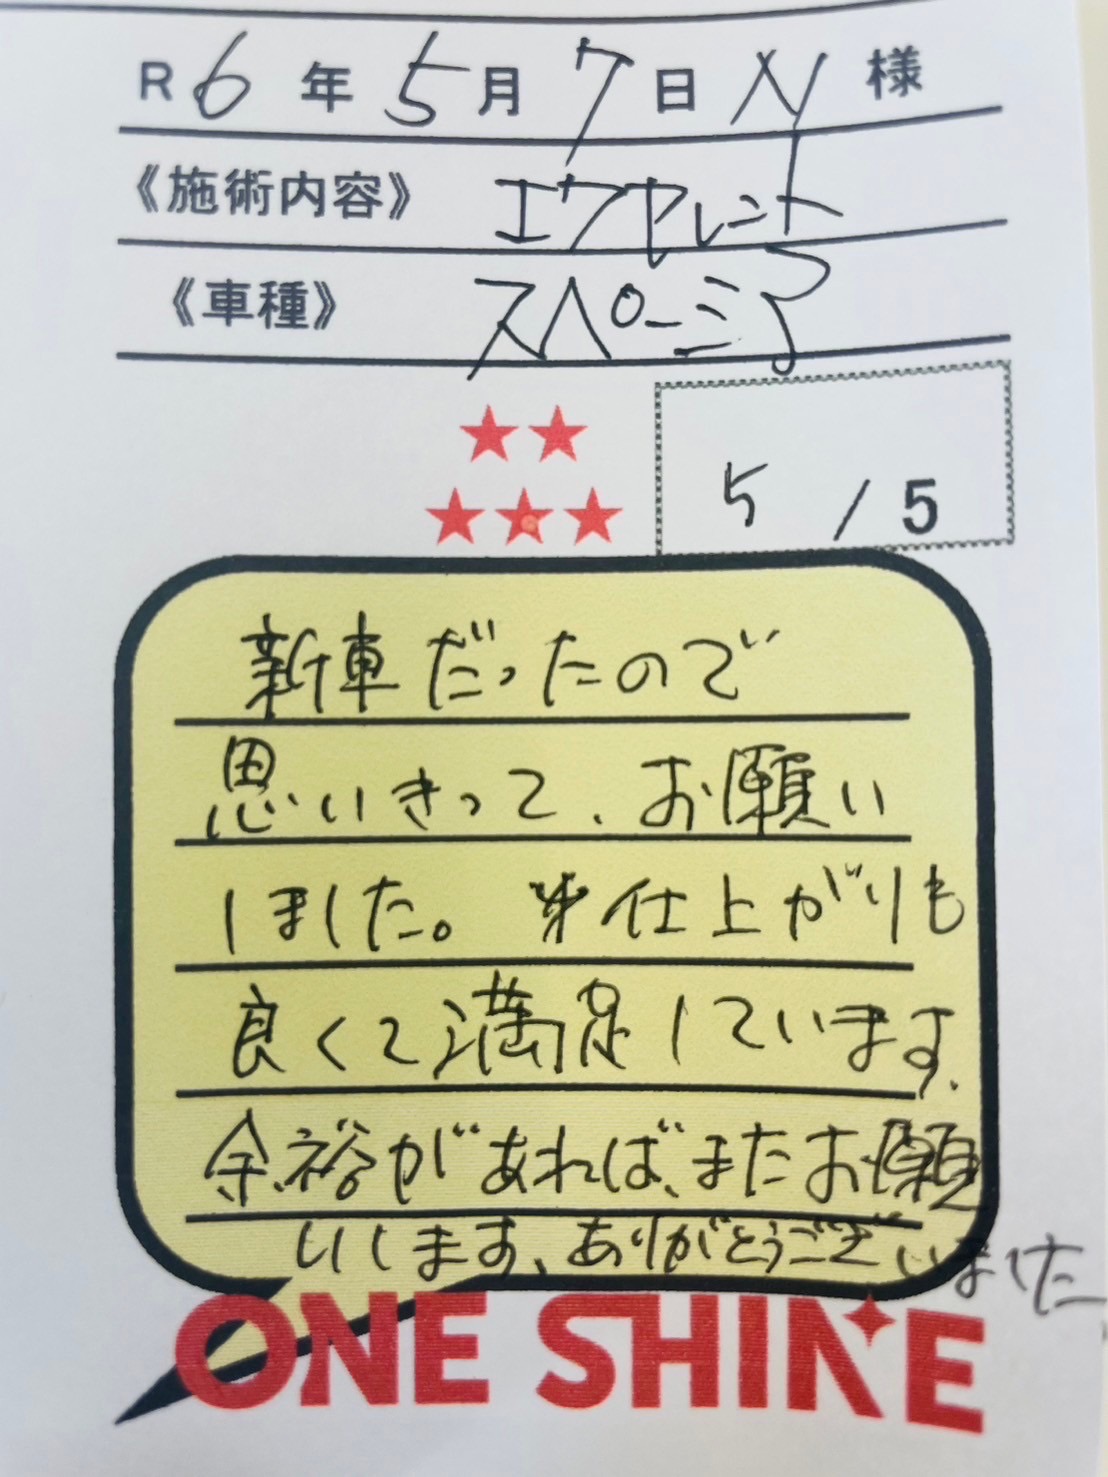 R6年5月7日 N様
《施術内容》 エクセレント
《車種》 スペーシア
5 / 5
新車だったので
思いきって、お願い
しました。仕上がりも
良くて満足しています。
余裕があれば、またお願
いします、ありがとうございました
ONE SHINE